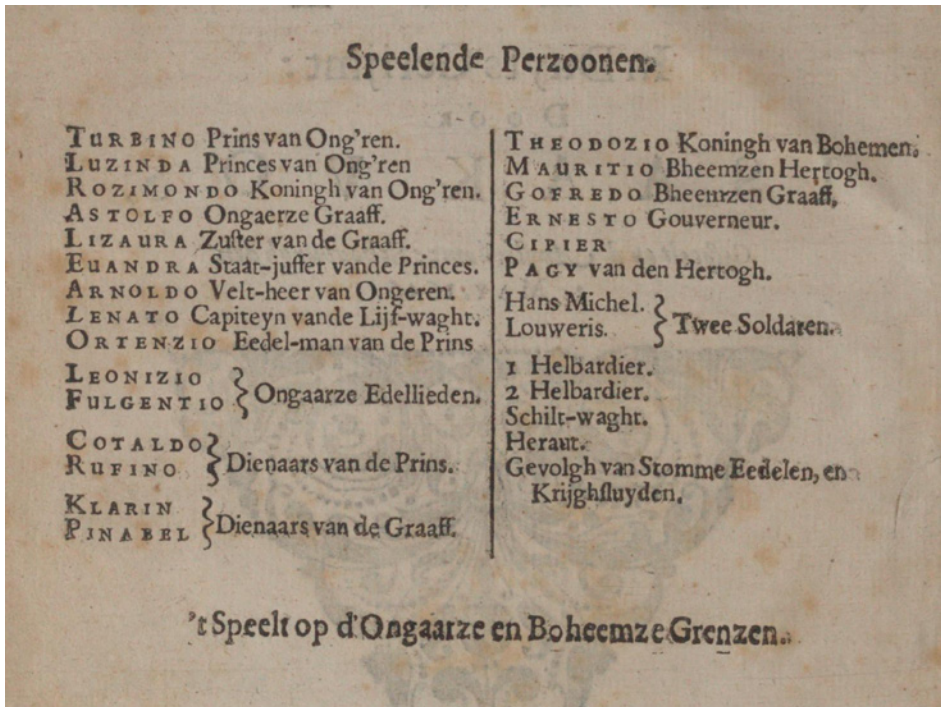 Speelende Perzoonen.
TURBINO Prins van Ong'ren.
LUZINDA Princes van Ong'ren
ROZIMONDO Koningh van Ong'ren.
ASTOLFO Ongaerze Graaff.
LIZAURA Zuster van de Graaff.
EUANDRA Staat-juffer vande Princes.
ARNOLDO Velt-heer van Ongeren.
LENATO Capiteyn vande Lijf-waght.
ORTENZIO Eedel-man van de Prins
LEONIZIO
FULGENTIO } Ongaarze Edellieden.
COTALDO
RUFINO } Dienaars van de Prins.
KLARIN
PINABEL } Dienaars van de Graaff.
THEODOZIO Koningh van Bohemen.
MAURITIO Bheemzen Hertogh.
GOFREDO Bheemzen Graaff.
ERNESTO Gouverneur.
CIPIER
PAGY van den Hertogh.
Hans Michel.
Louweris. } Twee Soldaten.
1 Helbardier.
2 Helbardier.
Schilt-waght.
Heraut.
Gevolgh van Stomme Eedelen, en
Krijghsluyden.
't Speelt op d'Ongaarze en Boheemze Grenzen.